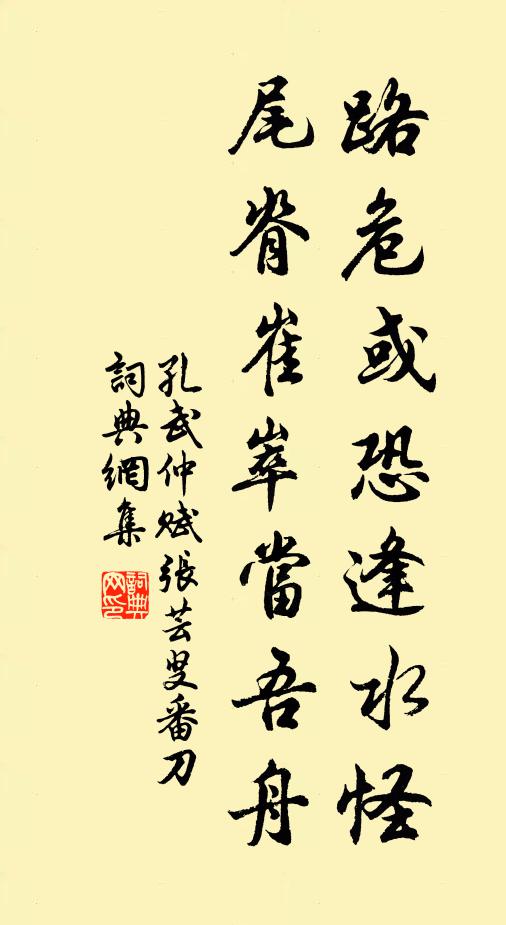 路危或恐逢水怪
尾脊崔崒當吾舟
孔武仲賦張芸叟番刀
詞典網集
詞典网印